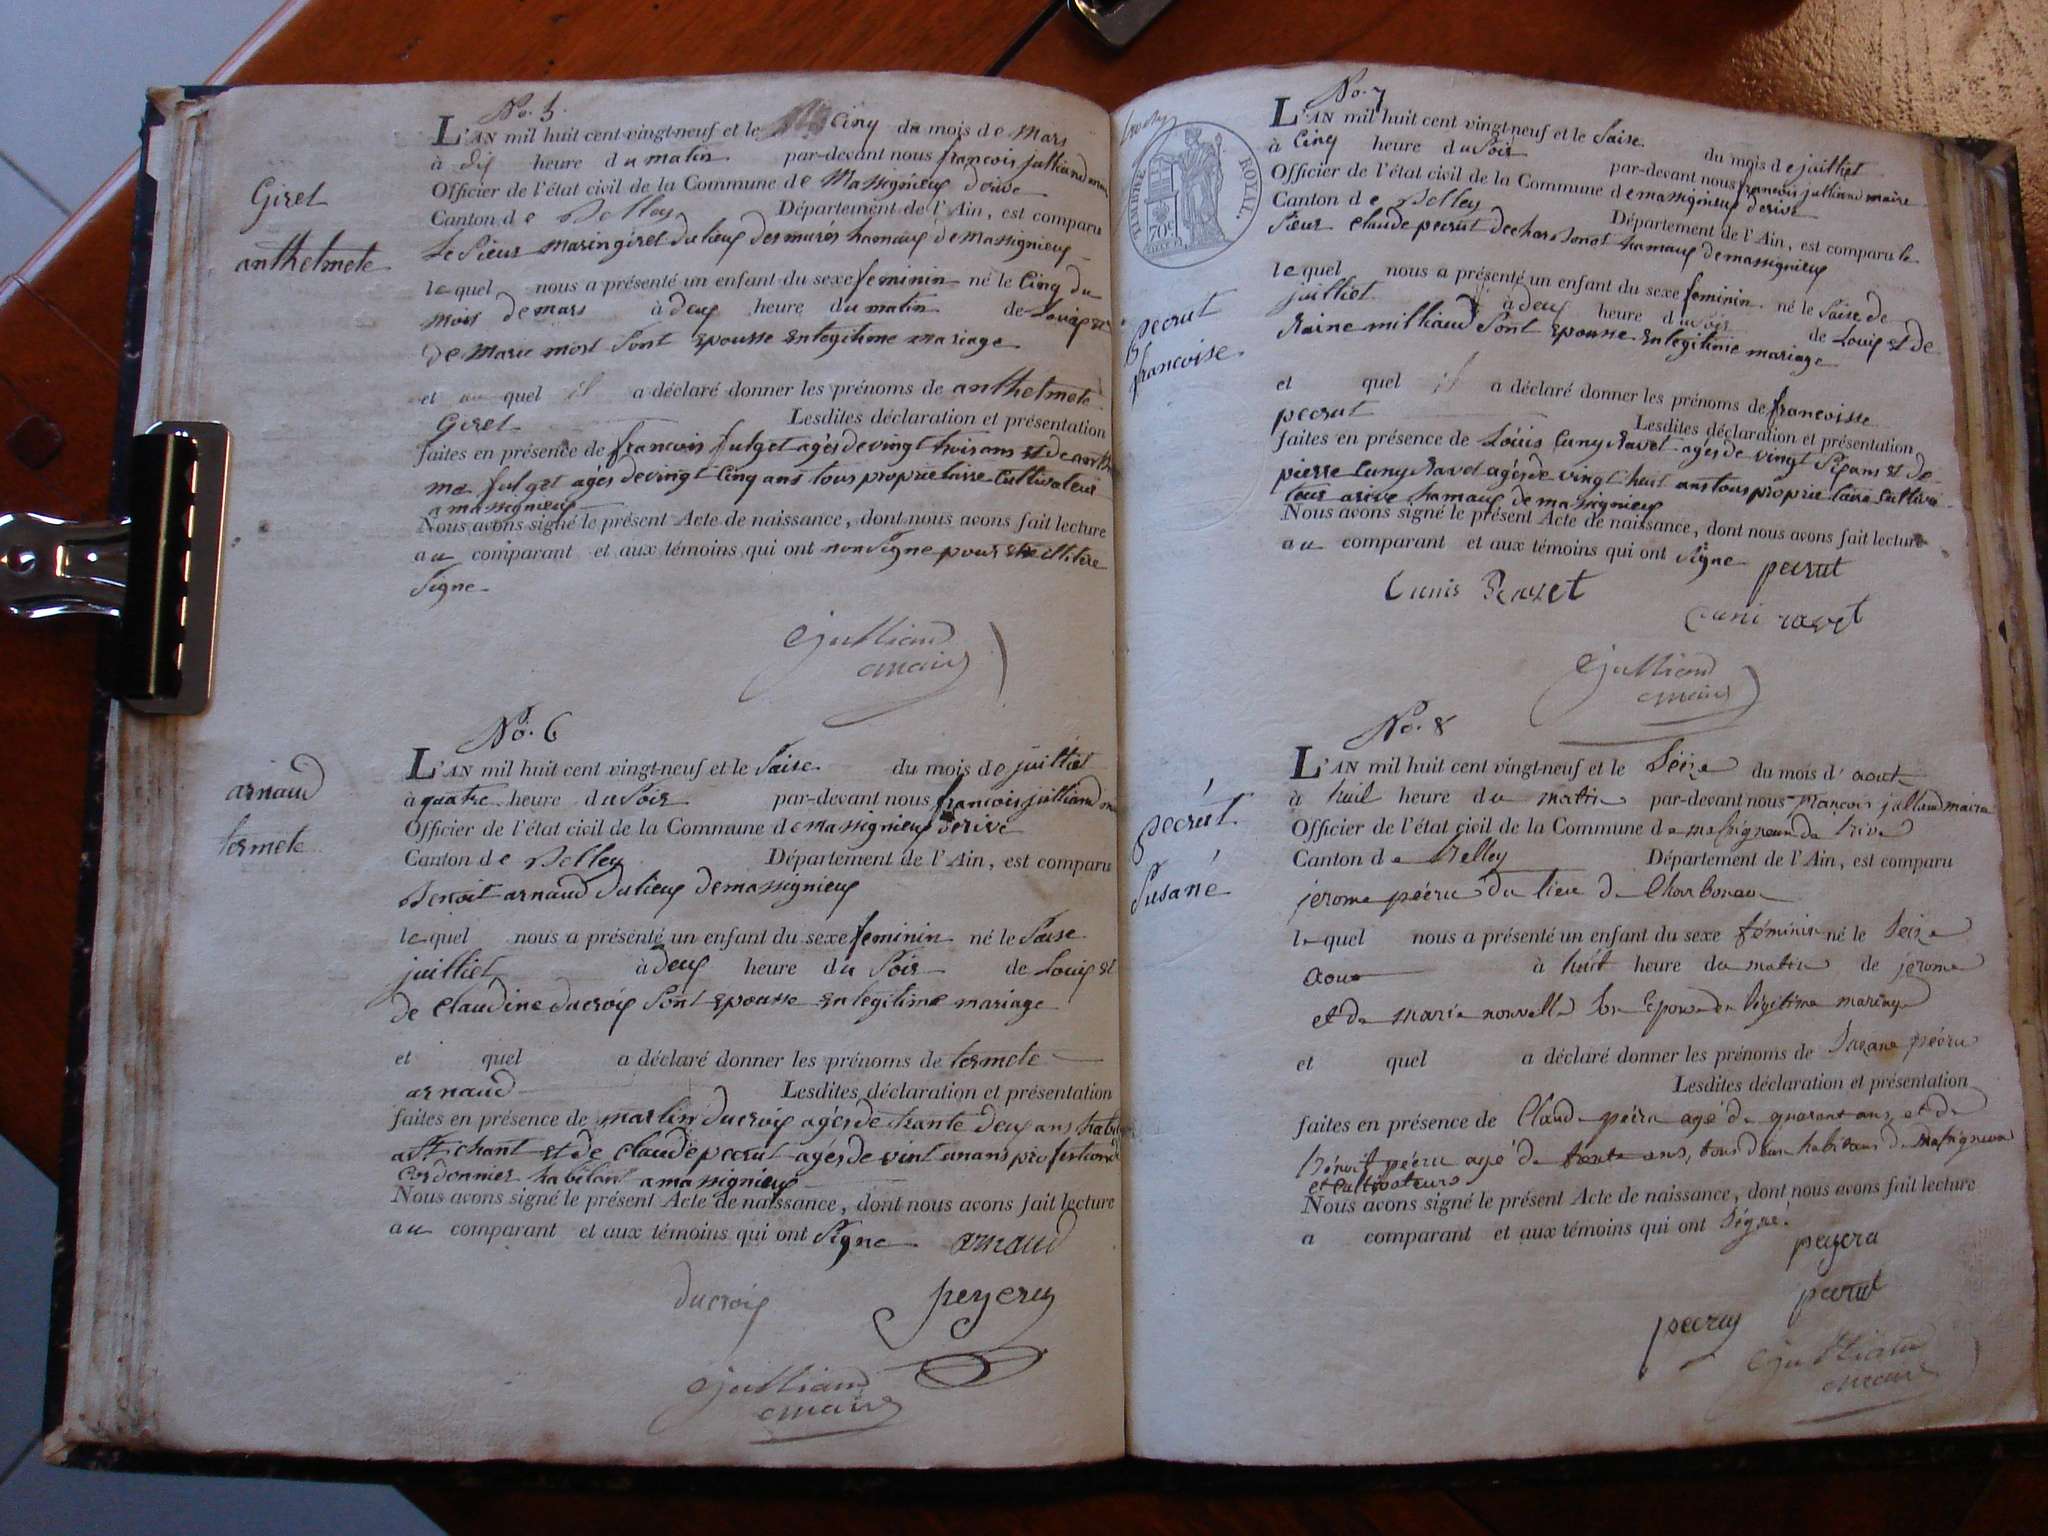 No. 5.
L'AN mil huit cent vingt-neuf et le cinq du mois de mars
à dix heure du matin par-devant nous francois julliand maire
Officier de l'état civil de la Commune de Massignieux derive
Canton de Belley Département de l'Ain, est comparu
Le Sieur marin giret du lieux des mures hamaux de Massignieux
Giret
anthelmete
lequel nous a présenté un enfant du sexe feminin né le Cinq du
mois de mars à deux heure du matin de Louis et
de Marie most sont Epousse en legitime mariage
et au quel il a déclaré donner les prénoms de anthelmete
Giret Lesdites déclaration et présentation
faites en présence de francois fulget agés de vingt trois ans et de
me fulget agés de vingt Cinq ans tous proprietairre Cultivateur
a massignieux
Nous avons signé le présent Acte de naissance, dont nous avons fait lecture
au comparant et aux témoins qui ont non Signe pour
Signe
julliand
maire
No. 6
arnaud
termete
L'AN mil huit cent vingt-neuf et le Saise du mois de juilliet
à quatre heure du Soir par-devant nous francois julliand
Officier de l'état civil de la Commune de massignieux derive
Canton de Belley Département de l'Ain, est comparu
Benoit arnaud du lieux de massignieux
lequel nous a présenté un enfant du sexe feminin né le Saise
juilliet à deux heure du Soir de Louis et
de Claudine ducroix Sont Epousse en legitime mariage
et quel a déclaré donner les prénoms de termete
arnaud Lesdites déclaration et présentation
faites en présence de martin ducroix agés de trante deux ans
chant et de Claude pecrut agés de vint un ans
Cordonnier habitant a massignieux
Nous avons signé le présent Acte de naissance, dont nous avons fait lecture
au comparant et aux témoins qui ont Signe arnaud
ducroix peyeru
julliand
maire
No. 7
TIMBRE ROYAL
70c
pecrut
francoise
L'AN mil huit cent vingt-neuf et le Saise du mois de juilliet
à Cinq heure du Soir par-devant nous francois julliand maire
Officier de l'état civil de la Commune de massignieux derive
Canton de Belley Département de l'Ain, est comparu le
Sieur Claude pecrut de charbonot hamaux de massignieux
lequel nous a présenté un enfant du sexe feminin né le Saise de
juilliet à deux heure du Soir de Louis et de
Raine milliand Sont Epousse en legitime mariage
et quel il a déclaré donner les prénoms de francoisse
pecrut Lesdites déclaration et présentation
faites en présence de Louis Cuny Ravet agés de vingt Sis ans et de
pierre Cuny Ravet agés de vingt huit ans tous proprietaire Cultiva
teur a rive hamaux de massignieux
Nous avons signé le présent Acte de naissance, dont nous avons fait lecture
au comparant et aux témoins qui ont Signe pecrut
Cunis Ravet
cuni ravet
julliand
maire
No. 8
pécrut
Susané
L'AN mil huit cent vingt-neuf et le Seize du mois d'aout
à huit heure du matin par-devant nous françois julliand maire
Officier de l'état civil de la Commune de massigneux de rive
Canton de Belley Département de l'Ain, est comparu
jerome pééru du lieu de Charbonau
lequel nous a présenté un enfant du sexe féminin né le Seize
Aout à huit heure du matin de jerome
et de marie nouvelle Son Epouse en légitime mariage
et quel a déclaré donner les prénoms de Suzane péeru
Lesdites déclaration et présentation
faites en présence de Claude péeru agé de quarant ans, et de
Bénoit péeru agé de trente ans, tous deux habitans de massigneux
et Cultivateurs
Nous avons signé le présent Acte de naissance, dont nous avons fait lecture
a comparant et aux témoins qui ont Signé.
peyeru
pecrut
peeruy
julliand
maire